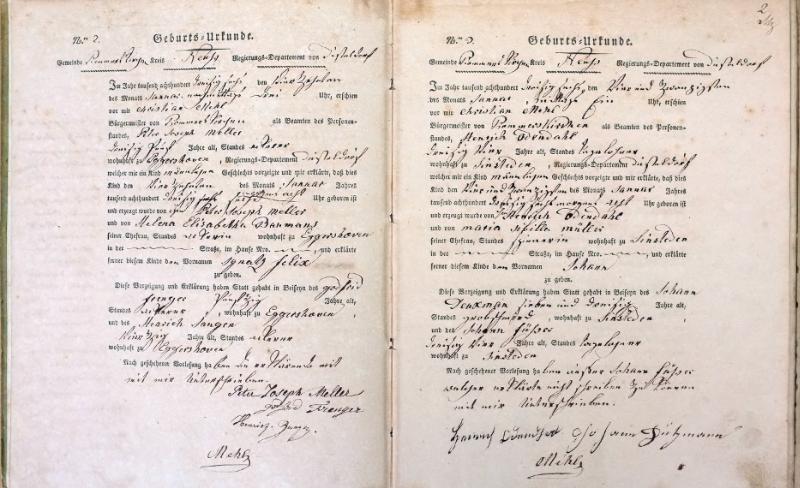 No. 2. Geburts-Urkunde.
Gemeinde Kreis Neuss Regierungs-Departement von Düsseldorf
Im Jahr tausend achthundert dreisig sechs den vierzehnten
des Monats Januar nachmittags drei Uhr, erschien
vor mir Christian Mehl
Bürgermeister von als Beamten des Personen-
standes, Peter Joseph Meller
dreisig fünf Jahre alt, Standes
wohnhaft zu Eggershoven, Regierungs-Departement Düsseldorf
welcher mir ein Kind männlichen Geschlechts vorzeigte und mir erklärte, daß dies
Kind den vierzehnten des Monats Januar Jahres
tausend achthundert dreisig sechs Uhr geboren ist
und erzeugt wurde von Peter Joseph Meller
und von Helena Elisabetha Baumans
seiner Ehefrau, Standes wohnhaft zu Eggershoven
in der Straße, im Hause Nro. und erklärte
ferner diesem Kinde den Vornamen Ignatz Felix
zu geben.
Diese Vorzeigung und Erklärung haben Statt gehabt in Beiseyn des Godfrid
Frenger fünfzig Jahre alt,
Standes , wohnhaft zu Eggershoven,
und des Henrich
vierzig Jahre alt, Standes
wohnhaft zu Eggershoven
Nach geschehener Vorlesung haben die
mit mir unterschrieben.
Peter Joseph Meller
Godfrid Frenger
Mehl
2
No. 3. Geburts-Urkunde.
Gemeinde Kreis Neuss Regierungs-Departement von Düsseldorf
Im Jahr tausend achthundert dreisig sechs, den vier und zwanzigsten
des Monats Januar, mittags ein Uhr, erschien
vor mir Christian Mehl
Bürgermeister von als Beamten des Personen-
standes, Henrich Odendahl
dreisig vier Jahre alt, Standes Tagelöhner
wohnhaft zu Sinsteden, Regierungs-Departement Düsseldorf
welcher mir ein Kind männlichen Geschlechts vorzeigte und mir erklärte, daß dies
Kind den vier und zwanzigsten des Monats Januar Jahres
tausend achthundert dreisig sechs morgens acht Uhr geboren ist
und erzeugt wurde von Henrich Odendahl
und von Maria Sibilla Müller
seiner Ehefrau, Standes Spinnerin wohnhaft zu Sinsteden
in der Straße, im Hause Nro. und erklärte
ferner diesem Kinde den Vornamen Johann
zu geben.
Diese Vorzeigung und Erklärung haben Statt gehabt in Beiseyn des Johann
sieben und dreisig Jahre alt,
Standes , wohnhaft zu Sinsteden,
und des Johann
dreisig vier Jahre alt, Standes Tagelöhner
wohnhaft zu Sinsteden
Nach geschehener Vorlesung haben außer Johann
welcher erklärte nicht schreiben zu können
mit mir unterschrieben.
Mehl